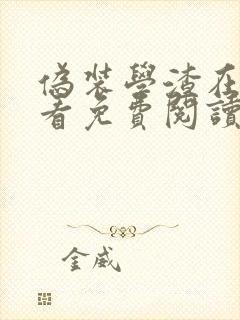 偽裝學渣在
看免費閱讀
金威